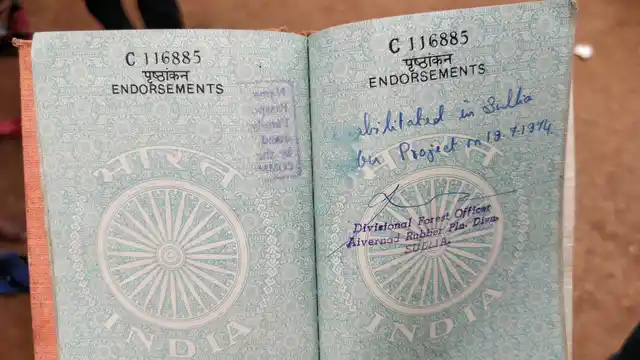 C 116885
पृष्ठांकन
ENDORSEMENTS
भारत
INDIA
C 116885
पृष्ठांकन
ENDORSEMENTS
abilitated in Sullia
Project on 19.7.1974
भारत
Divisional Forest Officer
Aivernad Rubber Pln. Divn.
SULLIA.
INDIA